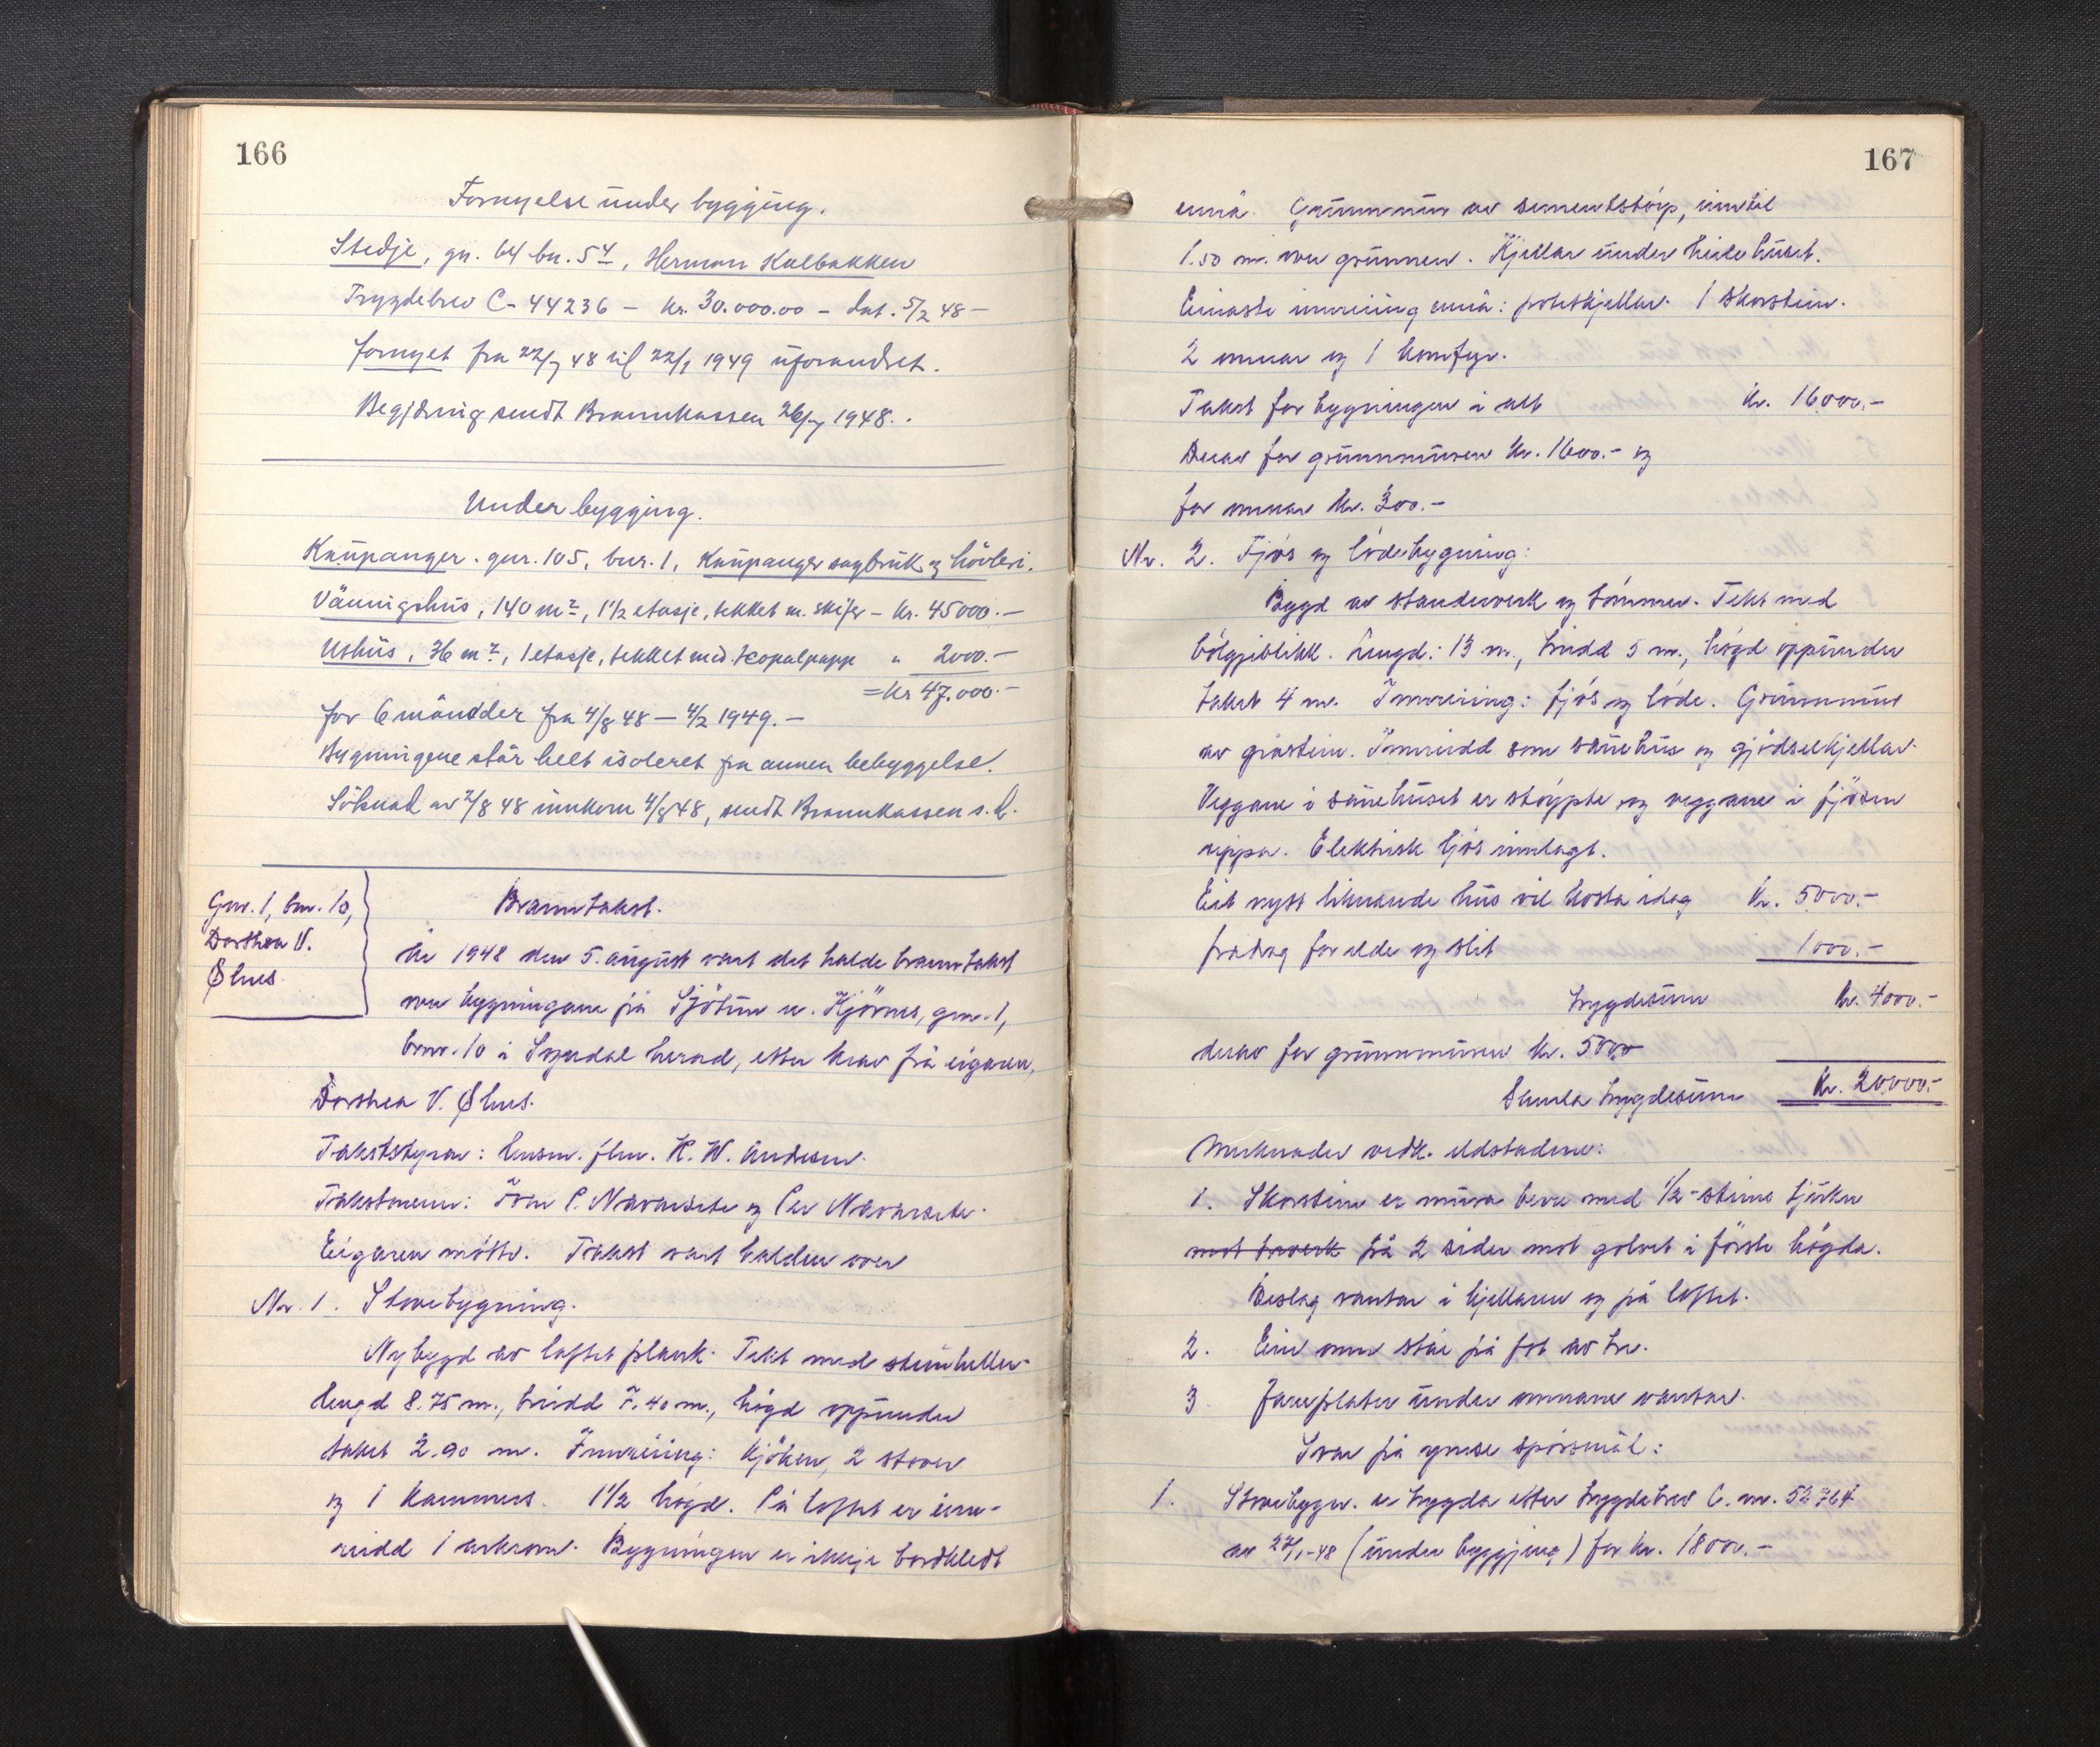 166
Fornyelse under bygging.
Stedje, gn. 64 bn. 54, Herman Kalbakken
Trygdebrev C-44236 – kr. 30.000.00 – dat. 5/2 48 –
fornyet fra 22/7 48 til 22/1 1949 uforandret.
Begjæring sendt Brannkassen 26/7 1948.
Under bygging.
Kaupanger. gnr. 105, bnr. 1, Kaupanger sagbruk og høvleri.
Våningshus, 140 m², 1½ etasje, tekket m. skifer – kr. 45000.–
Uthus, 36 m², 1 etasje, tekket med papp " 2000.–
= kr 47.000.–
for 6 måndder fra 4/8 48 – 4/2 1949. –
Bygningene står helt isoleret fra annen bebyggelse.
Søknad av 2/8 48 innkom 4/8 48, sendt Brannkassen s. d.
Gnr. 1, bnr. 10,
Dorthea V.
Øhus.
Branntakst.
År 1948 den 5. august vart det halde branntakst
over bygningane på Sjøtun u. Kjørnes, gnr. 1,
bnr. 10 i Sogndal herad, etter krav frå eigaren,
Dorthea V. Øhus.
Takststyrar: lensm. flm. H. W. Andersen.
Takstmenn: Ivar P. Navarsete og Per Navarsete.
Eigaren møtte. Takst vart halden over
Nr. 1. Stovebygning.
Nybygd av laftet plank. Tekt med steinheller.
Lengd 8.75 m., breidd 7.40 m., høgd oppunder
taket 2.90 m. Innreiing: kjøken, 2 stover
og 1 kammers. 1½ høgd. På loftet er inn-
reidd 1 arkrom. Bygningen er ikkje bordkledt
167
ennå. Grunnmur av sementstøyp, inntil
1.50 m. over grunnen. Kjellar under heile huset.
Einaste innreiing ennå: potetkjellar. 1 skorstein.
2 omnar og 1 komfyr.
Takst for bygningen i alt kr. 16000.–
Derav for grunnmuren kr. 1600.– og
for omnar kr. 300.–
Nr. 2. Fjøs og lødebygning:
Bygd av standerverk og tømmer. Tekt med
bølgjeblikk. Lengd: 13 m., breidd 5 m., høgd oppunder
taket 4 m. Innreiing: fjøs og løde. Grunnmur
av gråstein. Innreidd som sauehus og gjødselkjellar.
Veggane i sauehuset er støypte og veggane i fjøsen
. Elektrisk ljos innlagt.
Eit nytt liknande hus vil kosta idag kr. 5000.–
fradrag for elde og slit 1000.–
trygdesum kr. 4000.–
derav for grunnmuren kr. 500.–
Samla trygdesum kr. 20000.–
Merknader vedk. eldstadene:
1. Skorstein er mura berre med ½-steins tjukn
mot treverk på 2 sider mot golvet i første høgda.
Beslag vantar i kjellaren og på loftet.
2. Ein omn står på fot av tre.
3. Jarnplater under omnane vantar.
Svar på ymse spørsmål:
1. Stovebygn. er trygda etter trygdebrev C. nr. 52764
av 27/1-48 (under byggjing) for kr. 18000.–